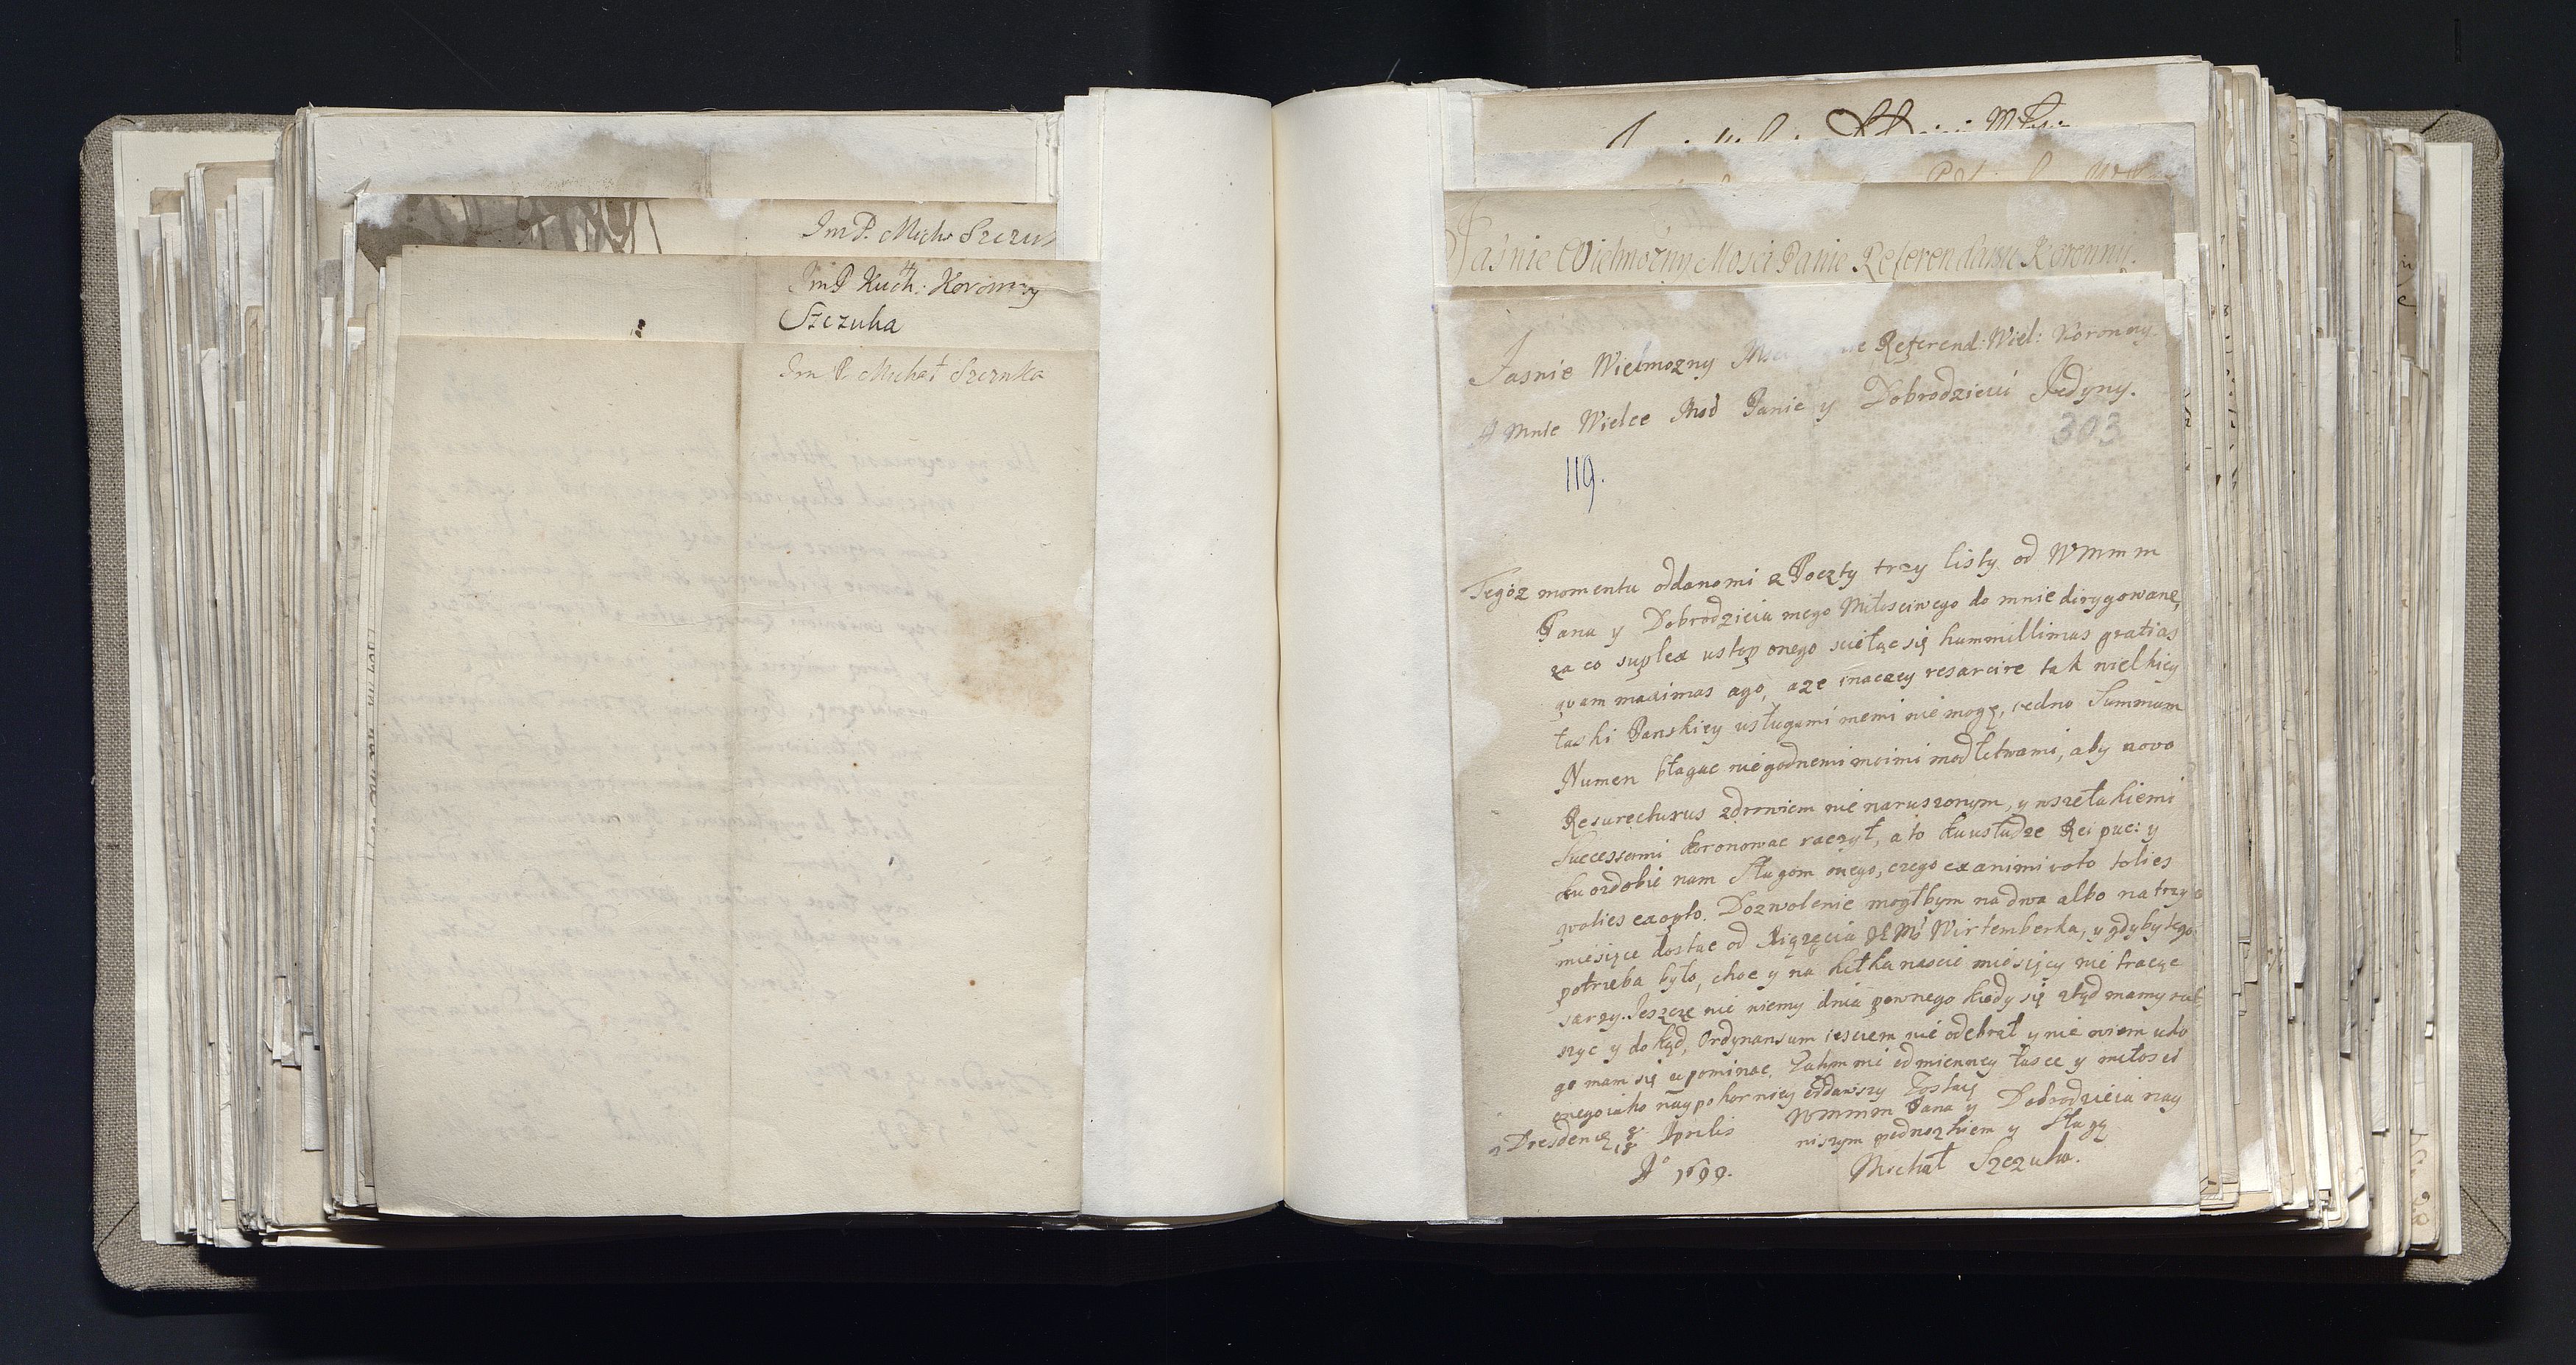 ImP. Micha Szczuk
ImP Kuch: Koronny
Szczuka
Im P. Michał Szczuka
Jaśnie Wielmożny Mosci Panie Referendarzu Koronny.
Jasnie Wielmozny Referend: Wiel: Koronny.
A mnie Wielce Mosci Panie y Dobrodzieiu Jedyny.
303
119.
Tegoż momentu oddano mi z Poczty trzy listy od Wmmm
Pana y Dobrodzieia mego Miłosciwego do mnie dirygowane,
za co suplex u stop onego sciełąc się hummillimas gratias
qvam maximas ago, a że inaczey resarcire tak wielkiey
łaski Panskiey usługami memi nie mogę, iedno Summum
Numen błagac niegodnemi moimi modłetwami, aby novo
Resurecturus zdrowiem nie naruszonym, y wszelakiemi
Successami koronowac raczył, a to ku usłudze Rei puc: y
ku ozdobie nam Sługom onego, czego ex animi voto toties
qvoties exopto. Dozwolenie mogłbym na dwa albo na trzy
miesiące dostac od Xiązęcia JE Mci Wirtemberka, y gdyby tego
potrzeba było, choc y na kilkanascie miesięcy nie tracąc
sarzy. Jeszcze nie wiemy dnia pewnego kiedy się ztąd mamy rusz
szyc y dokąd, Ordynansum ieszczem nie odebrał y nie wiem u ko
go mam się upominac. Zatym mi odmienney łasce y miłosci
onego iako naypokorniey oddawszy Zostaię
z Dresdenu 8/18 Aprilis
Wmmm Pana y Dobrodzieia nay
niszym podnozkiem y Sługą
Ao 1699.
Michał Szczuka.